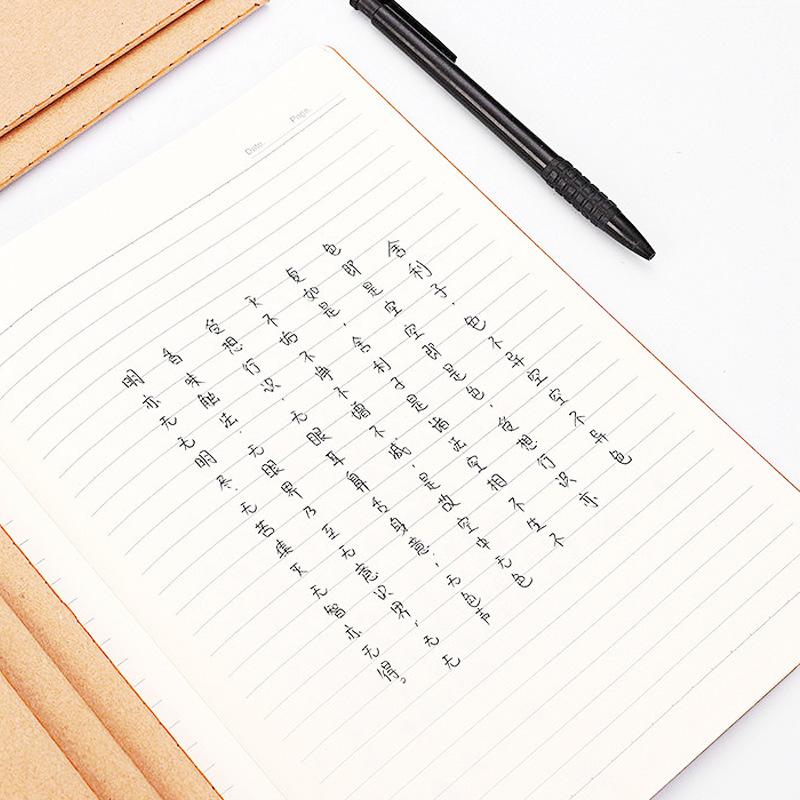 Date.
Page.
舍利子.色不异空空不异色
色即是空空即是色.受想行识亦
复如是.舍利子是诸法空相不生不
灭不垢不净不增不减.是故空中无色
受想行识.无眼耳鼻舌身意.无色声
香味触法.无眼界乃至无意识界.无无
明亦无无明尽.无苦集灭无智亦无得。